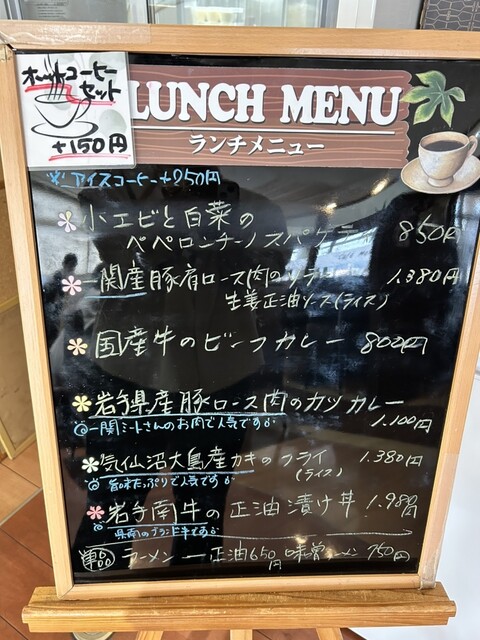 ホットコーヒー
セット
+150円
LUNCH MENU
ランチメニュー
※アイスコーヒー+250円
小エビと白菜の
ペペロンチーノスパゲティ 850円
一関産豚肩ロース肉のソテー 1,380円
生姜正油ソース(ライス)
国産牛のビーフカレー 800円
岩手県産豚ロース肉のカツカレー
1,100円
◎一関ミートさんのお肉で人気です
気仙沼大島産カキのフライ 1,380円
(ライス)
たっぷりで人気です
岩手南牛の正油漬け丼 1,980円
県南のブランド牛です
ラーメン 正油650円 味噌ラーメン 750円